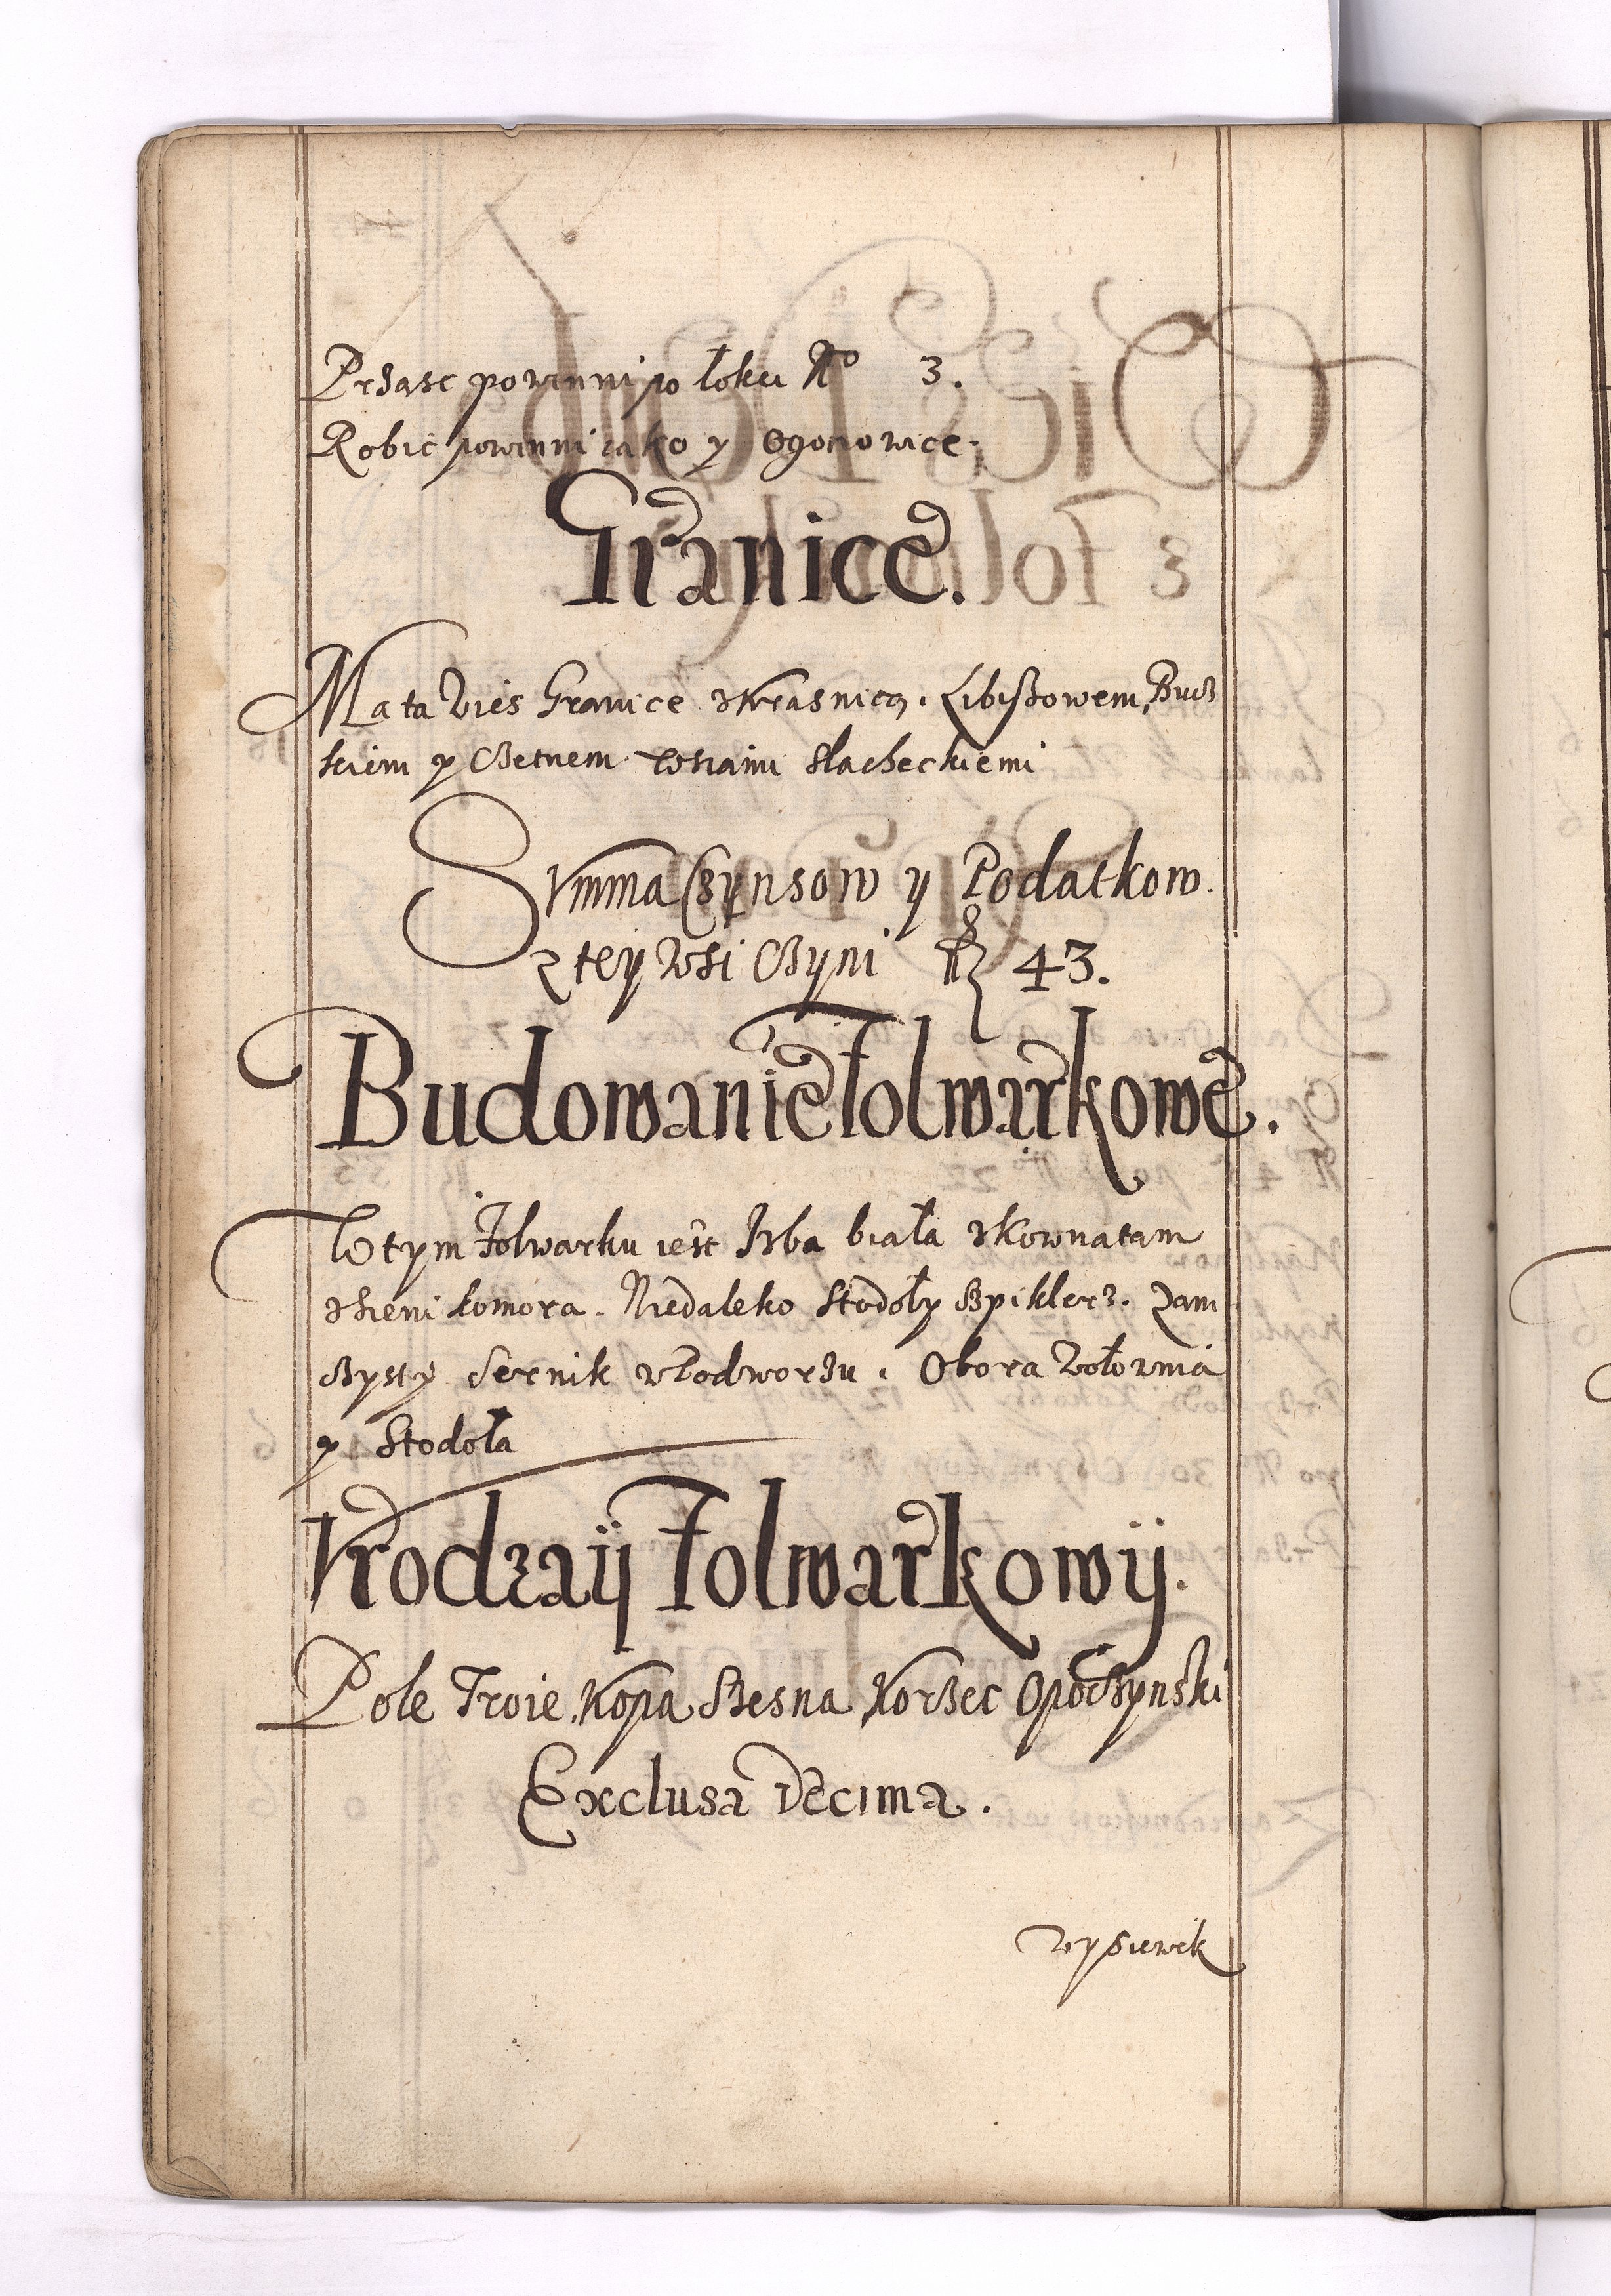 Prząsc powinni po łokci No 3.
Robić powinni iako y Ogonowice.
Granice.
Ma ta Wies Granice z Krasnicą, Libiszowem, Bucz
kiem y Czetnem wsiami slacheckiemi
Summa Czynsow y Podatkow.
z tey Wsi Czyni 43.
Budowanie Folwarkowe.
W tym Folwarku iest Izba biała z Kownatami
z Sieni komora. Niedaleko Stodoły Szpiklerz. Zam
czysty Sernik w Podworzu. Obora Wołownia
y Stodoła
Vrodzaÿ Folwarkowÿ.
Pole Troie. Kopa Szesna, Korzec Opoczynski
Exclusa Decima.